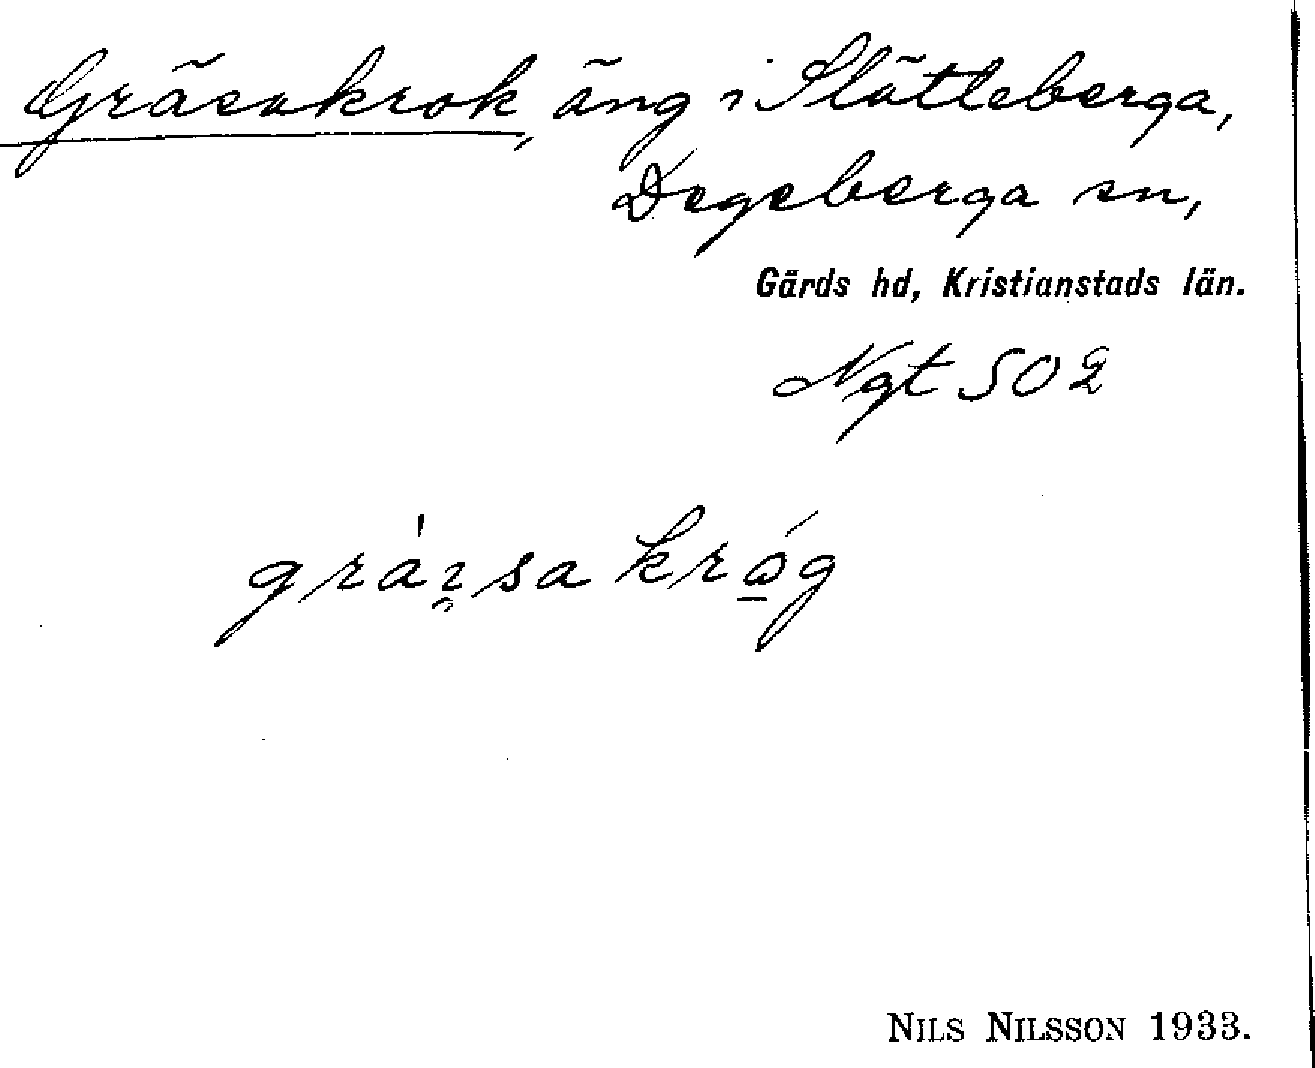 Gräsakrok, äng i Slätteberga,
Degeberga sn,
Gärds hd, Kristianstads län.
Ngt 502
Nils Nilsson 1933.